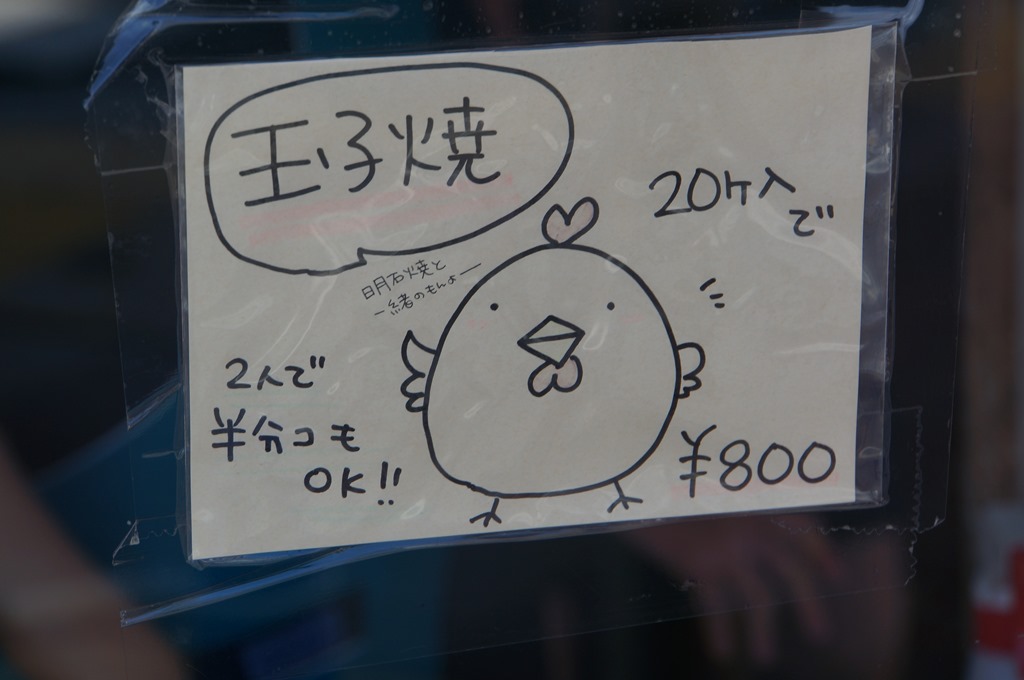 玉子焼
明石焼と
一緒のもんよー
20ケ入
で
2人で
半分コも
OK!!
¥800